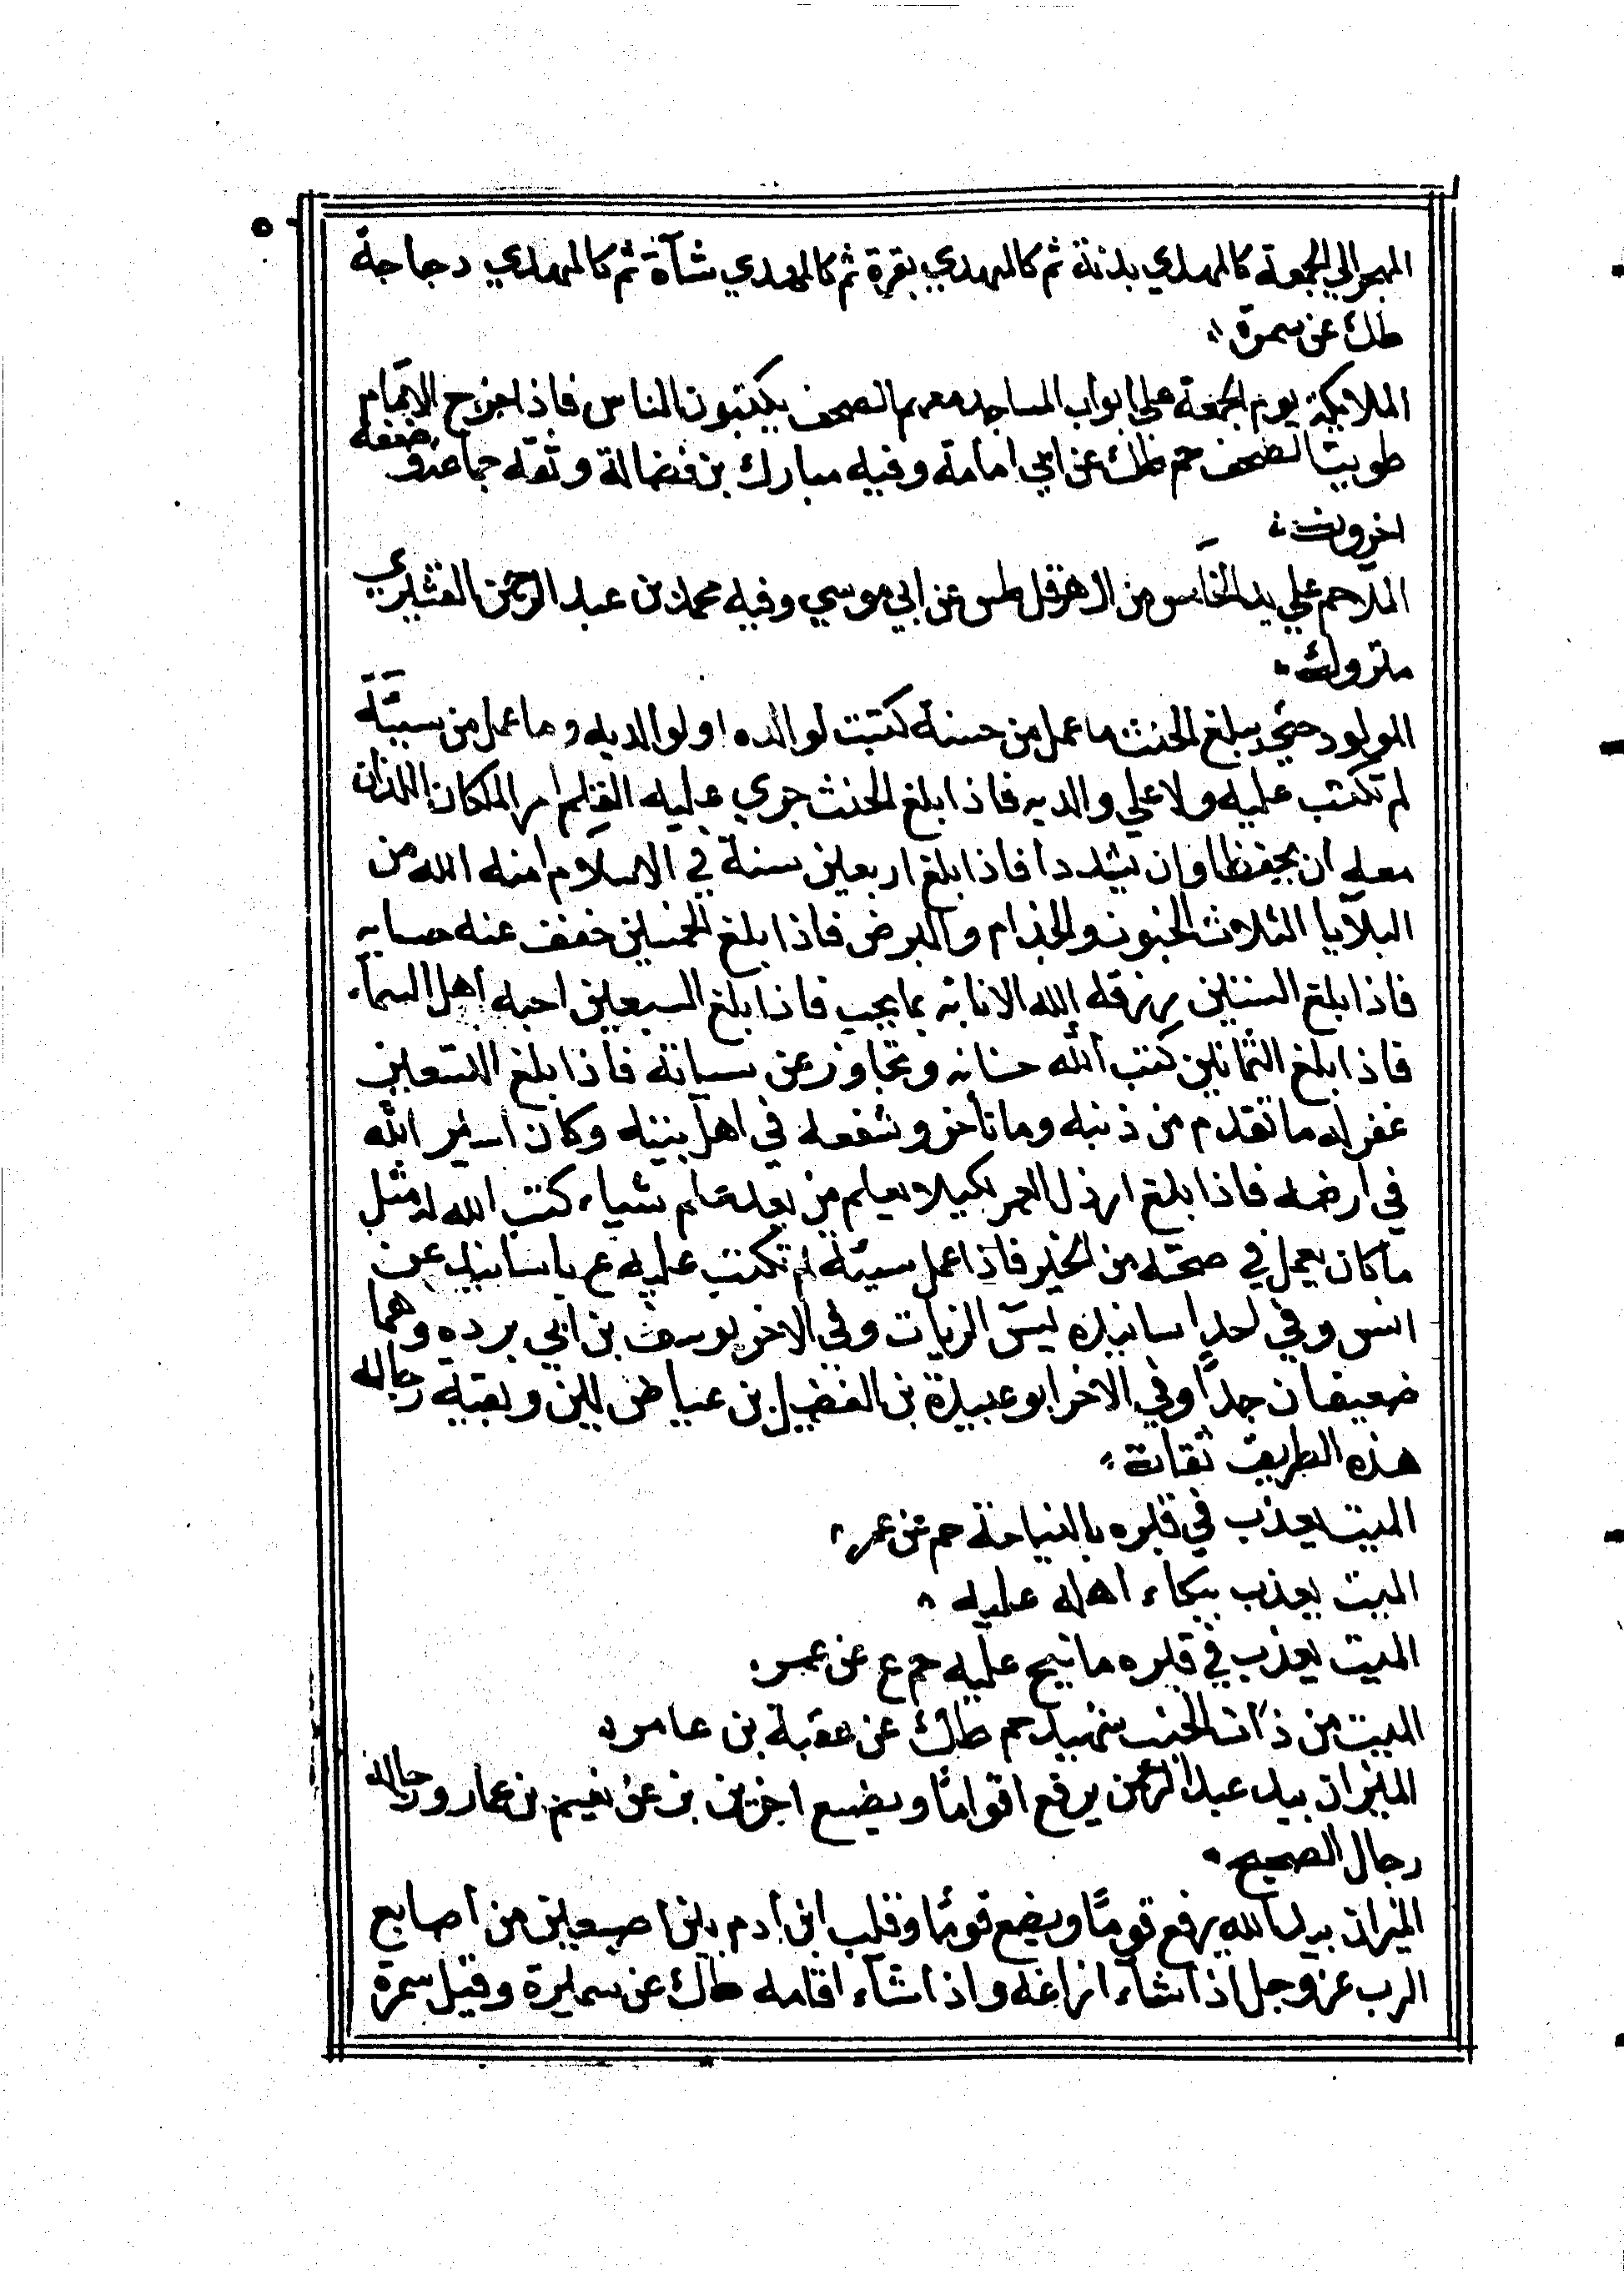 المهجر الي الجمعة كالمهدي بدنة ثم كالمهدي بقرة ثم كالمهدي شآة ثم كالمهدي دجاجة
طك عن سمرة
الملايكة يوم الجمعة علي ابواب المساجد معهم الصحف يكتبون الناس فاذا خرج الامام
طويت الصحف حم طك عن ابي امامة وفيه مبارك بن فضالة وثقه جماعة وضعفه
اخرون
الملاحم علي يد الخامس من ال هرقل طس عن ابي موسي وفيه محمد بن عبد الرحمن القشيري
متروك
المولود حتي يبلغ الحنث ما عمل من حسنة كتبت لوالده او لوالديه وما عمل من سيئة
لم تكتب عليه ولا علي والديه فاذا بلغ الحنث جري عليه القلم امر الملكان اللذان
معه ان يحفظا وان يشددا فاذا بلغ اربعين سنة في الاسلام امنه الله من
البلايا الثلاث الجنون والجذام والبرص فاذا بلغ الخمسين خفف عنه حسابه
فاذا بلغ الستين رزقه الله الانابة بما يحب فاذا بلغ السبعين احبه اهل السمآء
فاذا بلغ الثمانين كتب الله حسناته وتجاوز عن سياته فاذا بلغ التسعين
غفر له ما تقدم من ذنبه وما تأخر وشفعه في اهل بيته وكان اسير الله
في ارضه فاذا بلغ ارذل العمر لكيلا يعلم من بعد علم شياء كتب الله له مثل
ما كان يعمل في صحته من الخير فاذا عمل سيئة لم تكتب عليه ع باسانيد عن
انس وفي احد اسانيده يس الزيات وفي الاخر يوسف بن ابي برده وهما
ضعيفان جدًا وفي الاخر ابو عبيدة بن الفضيل بن عياض لين وبقية رجاله
هذه الطريق ثقات
الميت يعذب في قبره بالنياحة حم عن عمر
الميت يعذب ببكاء اهله عليه
الميت يعذب في قبره ما نيح عليه حم ع عن عمر
الميت من ذات الجنب شهيد حم طك عن عقبة بن عامر
الميزان بيد عبد الرحمن يرفع اقوامًا ويضع اخرين بز عن نعيم بن عمار ورجاله
رجال الصحيح
الميزان بيد الله يرفع قومًا ويضع قومًا وقلب ابن ادم بين اصبعين من اصابع
الرب عز وجل اذا شآء ازاغه واذا شآء اقامه طك عن سميرة وقيل سمرة